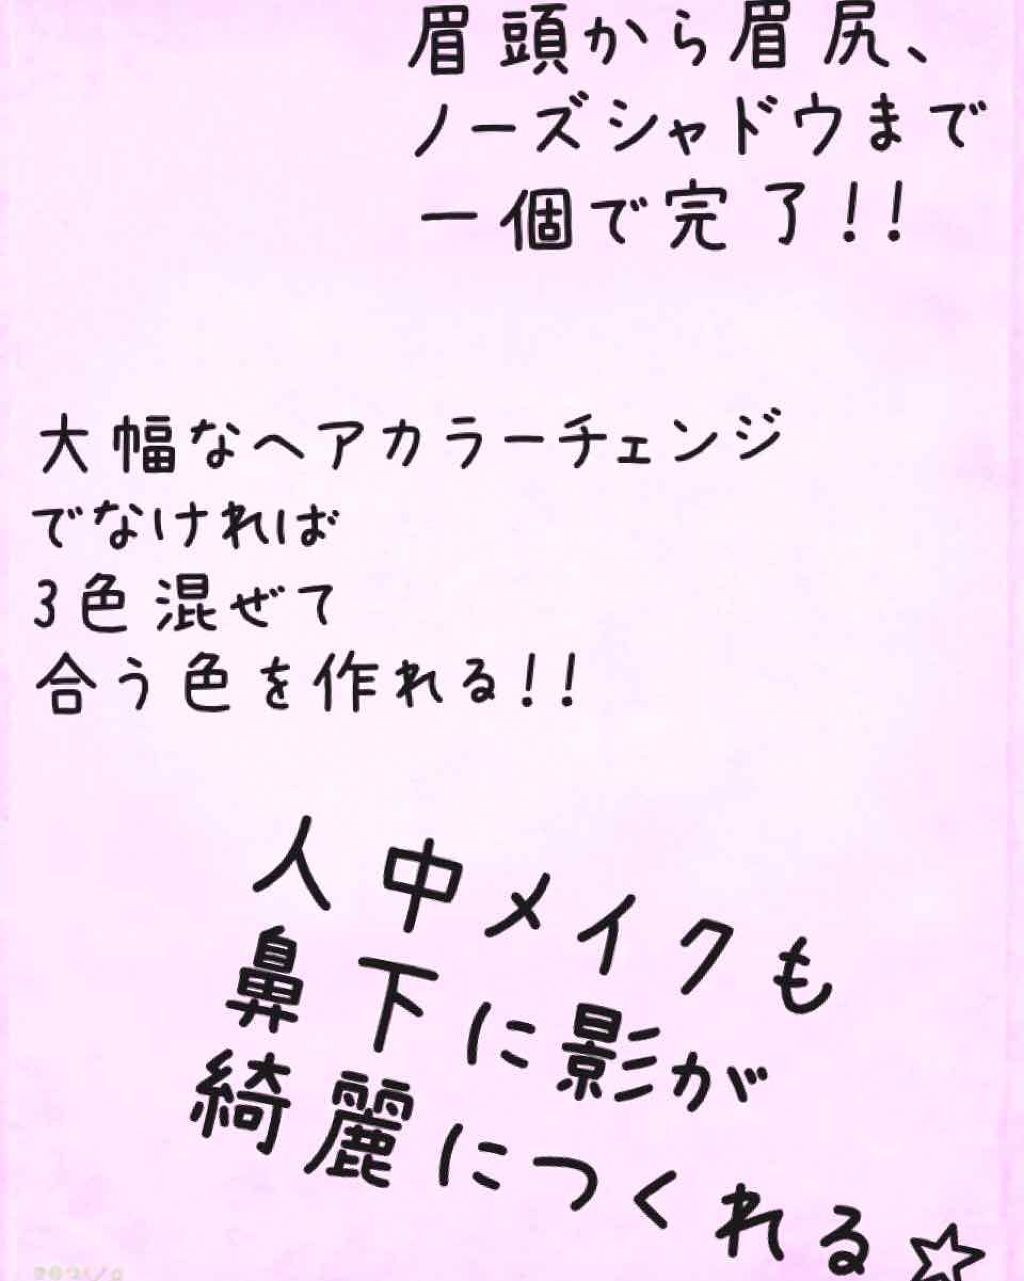 眉頭から眉尻、
ノーズシャドウまで
一個で完了!!
大幅なヘアカラーチェンジ
でなければ
3色混ぜて
合う色を作れる!!
人中メイクも
鼻下に影が
綺麗につくれる☆